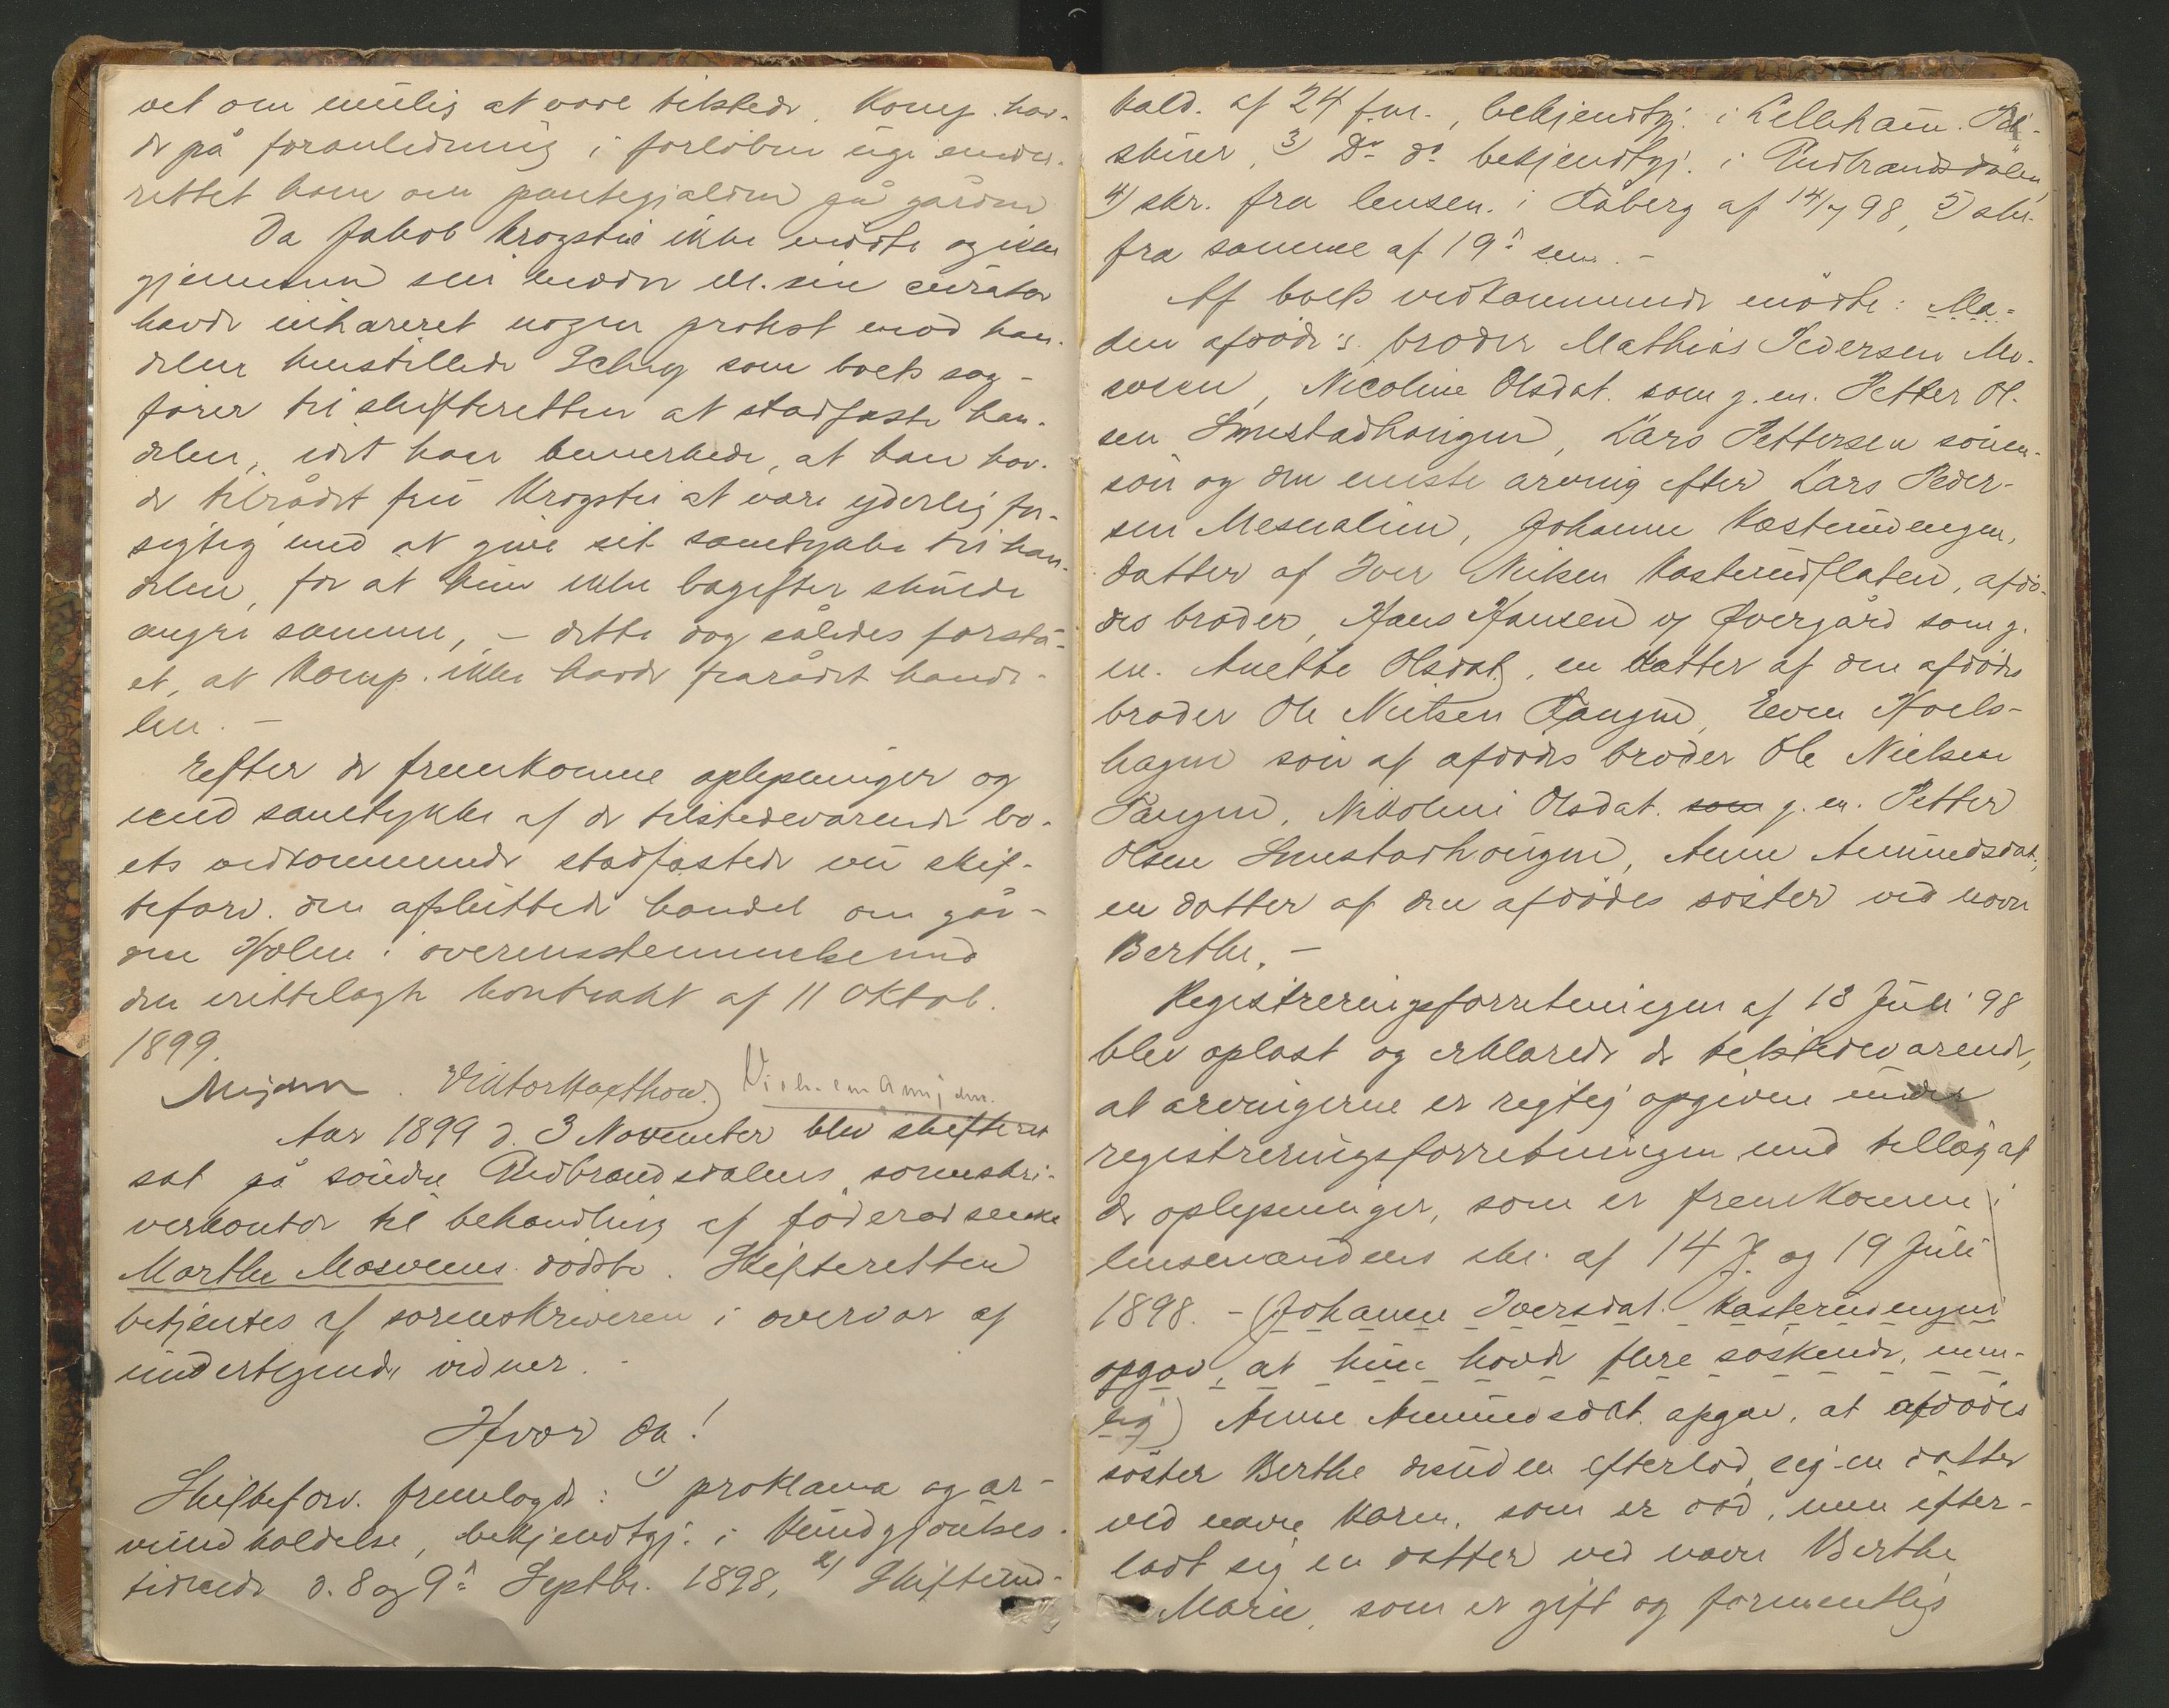 vet om mulig at være tilstede. Komp. hav-
de på foranledning i forløben uge under-
rettet ham om pantegjælden på gården
Da Jakob Krogstie ikke mødte og ikke
gjennem sin moder ell. sin curator
havde inhæreret nogen protest mod han-
delen henstillede som boets sag-
fører til skifteretten at stadfæste han-
delen, idet han bemærkede, at han hav-
de tilrådet fru Krogstie at være yderlig for-
sigtig med at give sit samtykke til han-
delen, for at hun ikke bagefter skulde
angre samme, – dette dog således forstå-
et, at Komp. ikke havde frarådet hande-
len. –
Efter de fremkomne oplysninger og
med samtykke af de tilstedeværende bo-
ets vedkommende stadfæstede nu skif-
teforv. den afsluttede handel om går-
den Holen i overensstemmelse med
den irettelagte kontrakt af 11 Oktob.
1899.
Mejdell. Viktor Haxthow.
Aar 1899 d. 3 November blev skifteret
sat på søndre Gudbrandsdalens sorenskri-
verkontor til behandling af føderådsenke
Marthe Mosveens dødsbo. Skifteretten
betjentes af sorenskriveren i overvær af
undertegnede vidner. –
Hvor da!
Skifteforv. fremlagde: 1) proklama og ar-
veindkaldelse, bekjendtgj. i Kundgjørelses-
tidende d. 8 og 9de Septbr. 1898, 2) Skifteind-
kald. af 24 f.m., bekjendtgj. i Lilleham. Til-
skuer, 3) Do do bekjendtgj. i Gudbrandsdølen,
4) skr. fra lensm. i Fåberg af 14/7 98, 5) skr.
fra samme af 19de sm. –
Af boets vedkommende mødte: Ma-
den afdøde's broder Mathias Pedersen Mo-
sveen, Nicoline Olsdat. som g. m. Petter Ol-
sen Smestadhaugen, Lars Pettersen sønne-
søn og den eneste arving efter Lars Peder-
sen Mesnalien, Johanne Kasterudengen,
datter af Iver Nilsen Kasterudflaten, afdø-
des broder, Hans Hansen Øvergård som g.
m. Anette Olsdat., en datter af den afdødes
broder Ole Nielsen Tangen, Even Hoels-
hagen søn af afdødes broder Ole Nielsen
Tangen, Nikoline Olsdat. som g. m. Petter
Olsen Smestadhaugen, Anne Amundsdat.,
en datter af den afdødes søster ved navn
Berthe. –
Registreringsforretningen af 18 Juli 98
blev oplæst og erklærede de tilstedeværende,
at arvingerne er rigtig opgivne under
registreringsforretningen med tillæg af
de oplysninger, som er fremkomne i
lensmandens skr. af 14 J. og 19 Juli
1898. – (Johanne Iversdat. Kasterudengen
opgav, at hun havde flere søskende, nem-
lig) Anne Amundsdat. opgav, at afdødes
søster Berthe desuden efterlod sig en datter
ved navn Karen, som er død, men efter-
ladt sig en datter ved navn Berthe
Marie, som er gift og formentlig